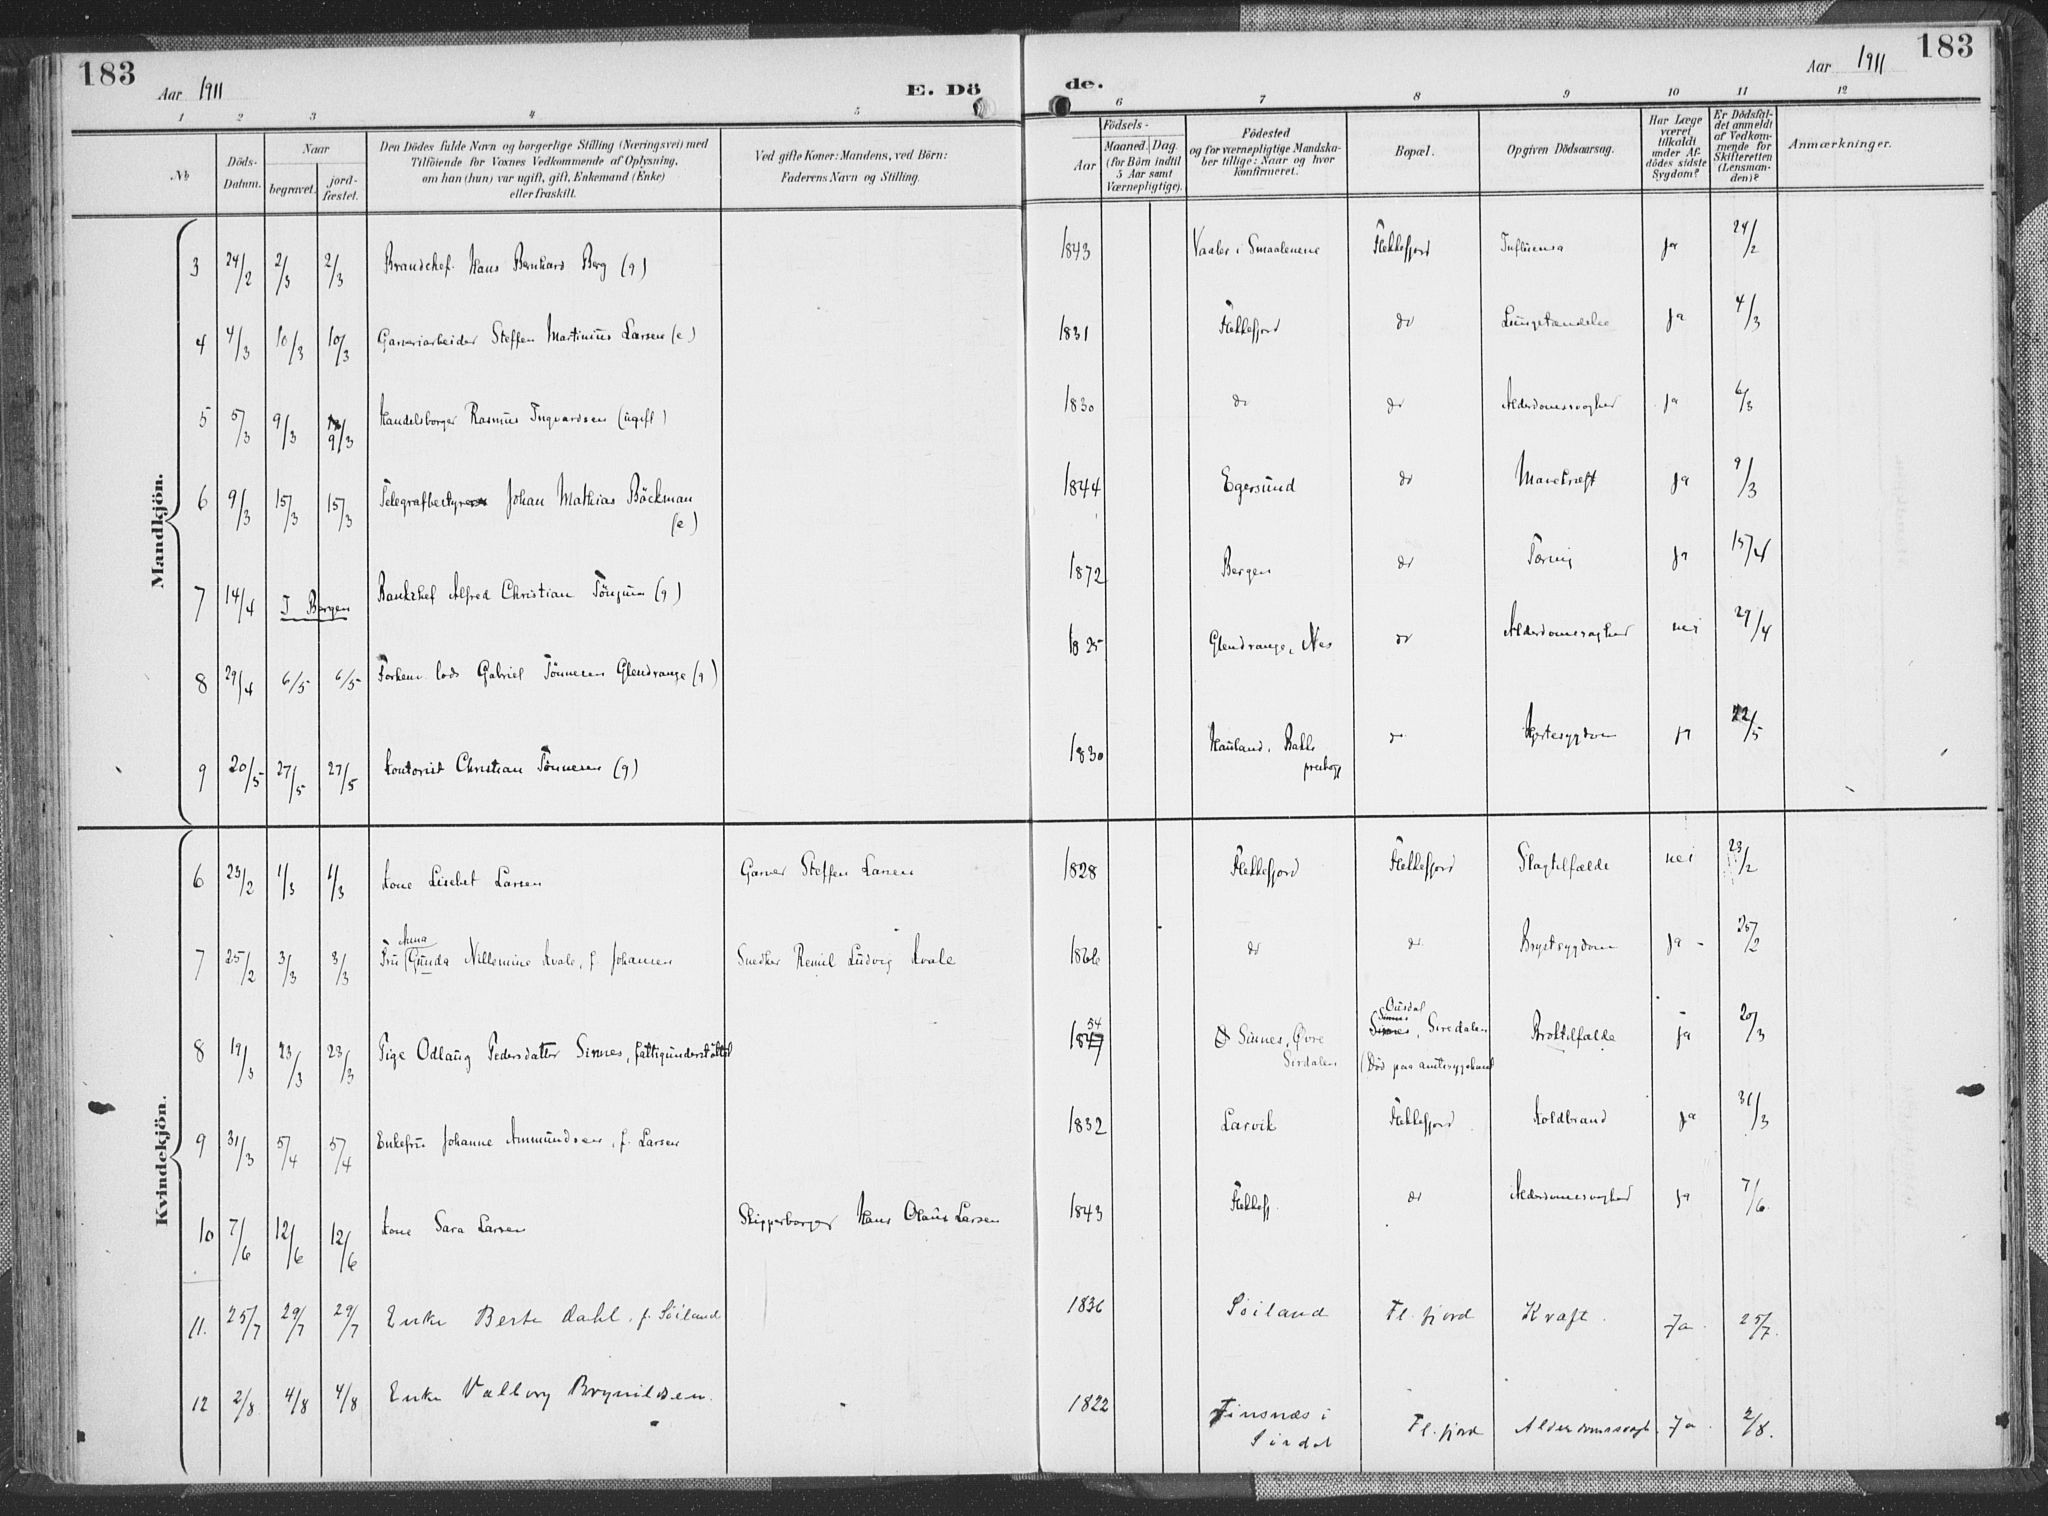 183
Aar 1911
E. Dö
de.
Aar 1911
183
1 2 3 4 5 6 7 8 9 10 11 12
No
Döds-Datum.
Naar
begravet. jord-fæstet.
Den Dödes fulde Navn og borgerlige Stilling (Næringsvei) med
Tilföiende for Voxnes Vedkommende af Oplysning,
om han (hun) var ugift, gift, Enkemand (Enke)
eller fraskilt.
Ved gifte Koner: Mandens, ved Börn:
Faderens Navn og Stilling.
Födsels-
Aar
Maaned. Dag.
(for Börn indtil
5 Aar samt
Værnepligtige).
Födested
og for værnepligtige Mandska-
ber tillige: Naar og hvor
konfirmeret.
Bopæl.
Opgiven Dödsaarsag.
Har Læge
været
tilkaldt
under Af-
dödes sidste
Sygdom?
Er Dödsfal-
det anmeldt
af Vedkom-
mende for
Skifteretten
(Lensman-
den)?
Anmærkninger.
Mandkjön.
3 24/2 2/3 2/3 Brandchef Hans Bernhard Berg (g) 1843 Vaaler i Smaalenene Flekkefjord Influensa ja 24/2
4 4/3 10/3 10/3 Garveriarbeider Steffen Martinius Larsen (e) 1831 Flekkefjord do Lungetændelse ja 4/3
5 5/3 9/3 9/3 Handelsborger Rasmus Ingvardsen (ugift) 1830 do do Alderdomssvaghed ja 6/3
6 9/3 15/3 15/3 Telegrafbestyrer Johan Mathias Böckman (e) 1844 Egersund do Mavekræft ja 9/3
7 14/4 I Bergen Bankchef Alfred Christian Tönjum (g) 1872 Bergen do Tæring ja 15/4
8 29/4 6/5 6/5 Forhenv. lods Gabriel Tönnesen Glendrange (g) 1825 Glendrange, Nes do Alderdomssvaghed nei 29/4
9 20/5 27/5 27/5 Kontorist Christian Tönnesen (g) 1830 Hauland, Bakke
prestegj do Hjertesygdom ja 22/5
Kvindekjön.
6 23/2 1/3 1/3 Kone Lisebet Larsen Garver Steffen Larsen 1828 Flekkefjord Flekkefjord Slagtilfælde nei 23/2
Anna
7 25/2 3/3 3/3 Fru Gunda Nillemine Kvale, f. Johansen Snedker Remil Ludvig Kvale 1866 do do Brystsygdom ja - 25/2
54 Ousdal
Sinnes
8 19/3 23/3 23/3 Pige Odlaug Pedersdatter Sinnes, fattigunderstöttet 1847 Sinnes, Övre
Sirdalen Sinnes, Siredalen
(Död paa amtssygehuset Broktilfælde ja 20/3
9 31/3 5/4 5/4 Enkefru Johanne Ammundsen, f. Larsen 1832 Larvik Flekkefjord Koldbrand ja 31/3
10 7/6 12/6 12/6 Kone Sara Larsen Skipperborger Hans Olaus Larsen 1843 Flekkefj. do Alderdomssvaghed ja 7/6
11. 25/7 29/7 29/7 Enke Berte Dahl, f. Söiland 1836 Söiland Fl.fjord Kræft. Ja. 25/7.
12 2/8 4/8 4/8 Enke Valborg Brynildsen. 1822 Finsnæs i
Sirdal Fl.fjord Alderdomssvagh. Ja. 2/8.